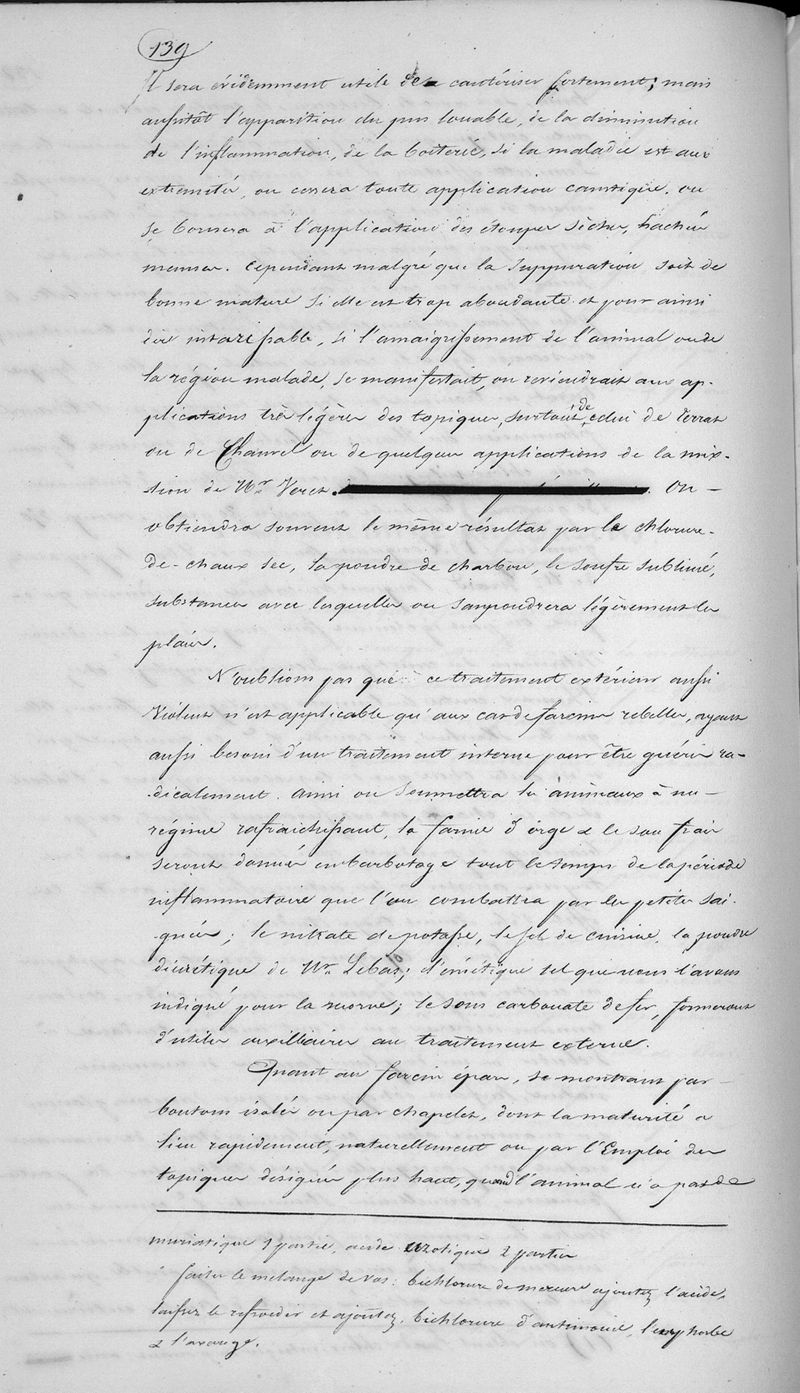 139
Il sera évidemment utile de cautériser fortement; mais
aussitôt l'apparition du pus louable, de la diminution
de l'inflammation, de la boiterie, si la maladie est aux
extremités, on cessera toute application caustique, on
se bornera à l'application des étoupes sèches, hachées
menues. Cependant malgré que la suppuration soit de
bonne nature si elle est trop abondante et pour ainsi
dire intarissable, si l'amaigrissement de l'animal ou de
la région malade, se manifestait, on reviendrait aux ap-
plications très légères des topiques, surtout de celui de Terrat
ou de Chanel ou de quelques applications de la mix-
tion de Mr Veret. On -
obtiendra souvent le même résultat par le chlorure-
de-chaux sec, la poudre de charbon, le soufre sublimé,
substances avec lesquelles on saupoudrera légèrement les
plaies.
N'oublions pas que ce traitement extérieur aussi
violent n'est applicable qu'aux cas de farcins rebelles, ayant
aussi besoin d'un traitement interne pour être guéris ra-
dicalement. Ainsi on soumettra les animaux à un -
régime rafraichissant, la farine d'orge & le son frais
seront donnés en barbotage tout le temps de la période
inflammatoire que l'on combattra par les petites sai-
gnées; le nitrate de potasse, le sel de cuisine, la poudre
diurétique de Mr Lebas; l'émétique tel que nous l'avons
indiqué pour la morve; le sous carbonate de fer, formeront
d'utiles auxilliaires au traitement externe.
Quant au farcin épars, se montrant par -
boutons isolés ou par chapelet, dont la maturité a
lieu rapidement, naturellement ou par l'Emploi des
topiques désignés plus haut, quand l'animal n'a pas de
muriatique 1 partie, acide azotique 2 parties
faites le mélange de vos: bichlorure de mercure ajoutez l'acide,
laissez le refroidir et ajoutez. bichlorure d'antimoine, l'euphorbe
& l'